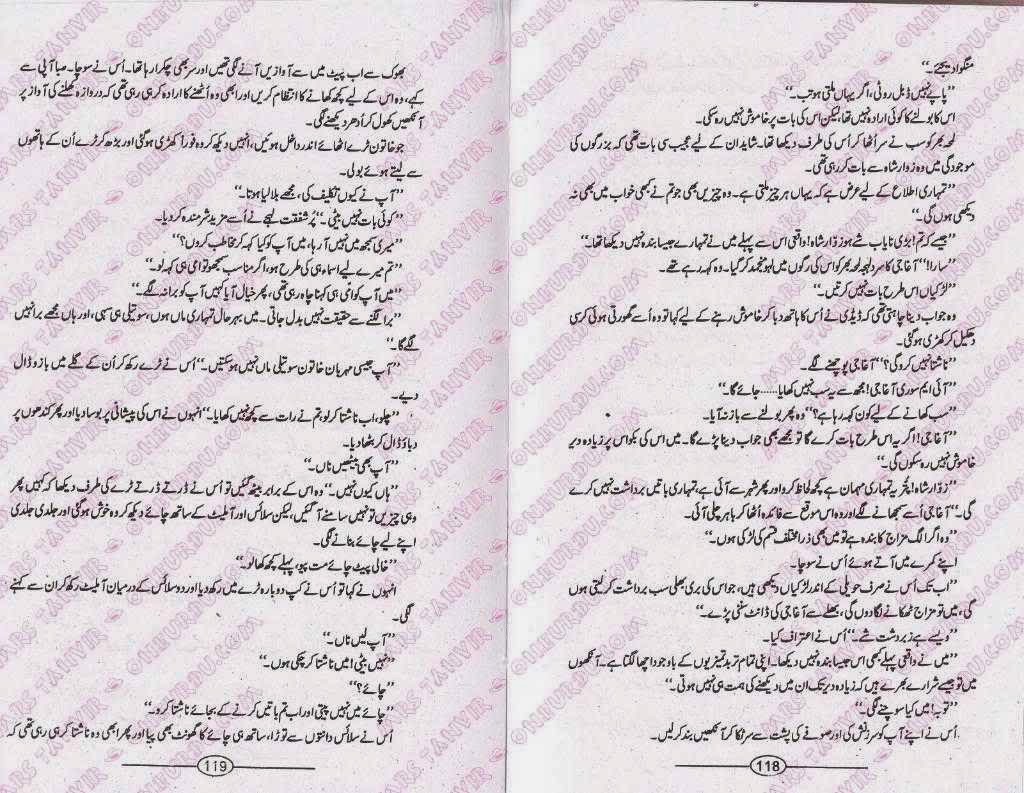 منگوا دیجئے۔‘‘
’’پاپے نہیں ڈبل روٹی، اگر یہاں ملتی ہو تب۔‘‘
اس کا بولنے کا کوئی ارادہ نہیں تھا، لیکن اس کی بات پر خاموش نہیں رہ سکی۔
لمحہ بھر کو سب نے سر اُٹھا کر اُس کی طرف دیکھا تھا۔ شاید ان کے لیے عجیب سی بات تھی کہ بزرگوں کی
موجودگی میں وہ زوار شاہ سے بات کر رہی تھی۔
’’تمہاری اطلاع کے لیے عرض ہے کہ یہاں ہر چیز ملتی ہے۔ وہ چیزیں بھی جو تم نے کبھی خواب میں بھی نہ
دیکھی ہوں گی۔‘‘
’’جیسے کہ تم! بڑی نایاب شے ہو زوّار شاہ! واقعی اس سے پہلے میں نے تمہارے جیسا بندہ نہیں دیکھا تھا۔‘‘
’’سارا!‘‘ آغا جی کا سرد لہجہ لمحہ بھر کو اس کی رگوں میں لہو منجمد کر گیا۔ وہ کہہ رہے تھے۔
’’لڑکیاں اس طرح بات نہیں کرتیں۔‘‘
وہ جواب دینا چاہتی تھی کہ ڈیڈی نے اُس کا ہاتھ دبا کر خاموش رہنے کے لیے کہا تو وہ اُسے گھورتی ہوئی کرسی
دھکیل کر کھڑی ہو گئی۔
’’ناشتا نہیں کرو گی؟‘‘ آغا جی پوچھنے لگے۔
’’آئی ایم سوری آغا جی! مجھ سے یہ سب نہیں کھایا...... جائے گا۔‘‘
’’سب کھانے کے لیے کون کہہ رہا ہے؟‘‘ وہ پھر بولنے سے باز نہ آیا۔
’’آغا جی! اگر یہ اس طرح بات کرے گا تو مجھے بھی جواب دینا پڑے گا۔ میں اس کی بکواس پر زیادہ دیر
خاموش نہیں رہ سکوں گی۔‘‘
’’زوّار شاہ! پتر یہ تمہاری مہمان ہے کچھ لحاظ کرو اور پھر شہر سے آئی ہے، تمہاری باتیں برداشت نہیں کرے
گی۔‘‘ آغا جی اُسے سمجھانے لگے اور وہ اس موقع سے فائدہ اُٹھا کر باہر چلی آئی۔
’’وہ اگر الگ مزاج کا بندہ ہے تو میں بھی ذرا مختلف قسم کی لڑکی ہوں۔‘‘
اپنے کمرے میں آتے ہوئے اُس نے سوچا۔
’’اب تک اُس نے صرف حویلی کے اندر لڑکیاں دیکھی ہیں، جو اس کی بری بھلی سب برداشت کر لیتی ہوں
گی، میں تو مزاج ٹھکانے لگا دوں گی، بھلے سے آغا جی کی ڈانٹ سننی پڑے۔‘‘
’’ویسے ہے زبردست شے۔‘‘ اُس نے اعتراف کیا۔
’’میں نے واقعی پہلے کبھی اس جیسا بندہ نہیں دیکھا۔ اپنی تمام تر بدتمیزیوں کے باوجود اچھا لگتا ہے۔ آنکھوں
میں تو جیسے شرارے بھرے ہیں کہ زیادہ دیر تک ان میں دیکھنے کی ہمت ہی نہیں ہوتی۔‘‘
’’توبہ! میں کیا سوچنے لگی۔‘‘
اُس نے اپنے آپ کو سرزنش کی اور صوفے کی پشت سے سر ٹکا کر آنکھیں بند کر لیں۔
118
بھوک سے اب پیٹ میں سے آوازیں آنے لگی تھیں اور سر بھی چکرا رہا تھا۔ اُس نے سوچا۔ صبا آپی سے
کہے، وہ اس کے لیے کچھ کھانے کا انتظام کریں اور ابھی وہ اُٹھنے کا ارادہ کر ہی رہی تھی کہ دروازہ کھلنے کی آواز پر
آنکھیں کھول کر اُدھر دیکھنے لگی۔
جو خاتون ٹرے اٹھائے اندر داخل ہوئیں، انہیں دیکھ کر وہ فوراً کھڑی ہو گئی اور بڑھ کر ٹرے اُن کے ہاتھوں
سے لیتے ہوئے بولی۔
’’آپ نے کیوں تکلیف کی، مجھے بلا لیا ہوتا۔‘‘
’’کوئی بات نہیں بیٹی۔‘‘ پُر شفقت لہجے نے اُسے مزید شرمندہ کر دیا۔
’’میری سمجھ میں نہیں آ رہا، میں آپ کو کیا کہہ کر مخاطب کروں؟‘‘
’’تم میرے لیے اسماء ہی کی طرح ہو، اگر مناسب سمجھو تو امی ہی کہہ لو۔‘‘
’’میں آپ کو امی ہی کہنا چاہ رہی تھی، پھر خیال آیا کہیں آپ کو برا نہ لگے۔‘‘
’’برا لگنے سے حقیقت نہیں بدل جاتی۔ میں بہرحال تمہاری ماں ہوں، سوتیلی ہی سہی، اور ہاں مجھے برا نہیں
لگے گا۔‘‘
’’آپ جیسی مہربان خاتون سوتیلی ماں نہیں ہو سکتیں۔‘‘ اُس نے ٹرے رکھ کر اُن کے گلے میں بازو ڈال
دیے۔
’’چلو، اب ناشتا کر لو، تم نے رات سے کچھ نہیں کھایا۔‘‘ انہوں نے اس کی پیشانی پر بوسا دیا اور پھر کندھوں پر
دباؤ ڈال کر بٹھا دیا۔
’’آپ بھی بیٹھیں ناں۔‘‘
’’ہاں کیوں نہیں۔‘‘ وہ اس کے برابر بیٹھ گئیں تو اُس نے ڈرتے ڈرتے ٹرے کی طرف دیکھا کہ کہیں پھر
وہی چیزیں تو نہیں سامنے آ گئیں، لیکن سلائس اور آملیٹ کے ساتھ چائے دیکھ کر وہ خوش ہو گئی اور جلدی جلدی
اپنے لیے چائے بنانے لگی۔
’’خالی پیٹ چائے مت پیو، پہلے کچھ کھا لو۔‘‘
انہوں نے کہا تو اُس نے کپ دوبارہ ٹرے میں رکھ دیا اور دو سلائس کے درمیان آملیٹ رکھ کر ان سے کہنے
لگی۔
’’آپ لیں ناں۔‘‘
’’نہیں بیٹی! میں ناشتا کر چکی ہوں۔‘‘
’’چائے؟‘‘
’’چائے میں نہیں پیتی اور اب تم باتیں کرنے کے بجائے ناشتا کرو۔‘‘
اُس نے سلائس دانتوں سے توڑا، ساتھ ہی چائے کا گھونٹ بھی پیا اور پھر ابھی وہ ناشتا کر ہی رہی تھی کہ
119